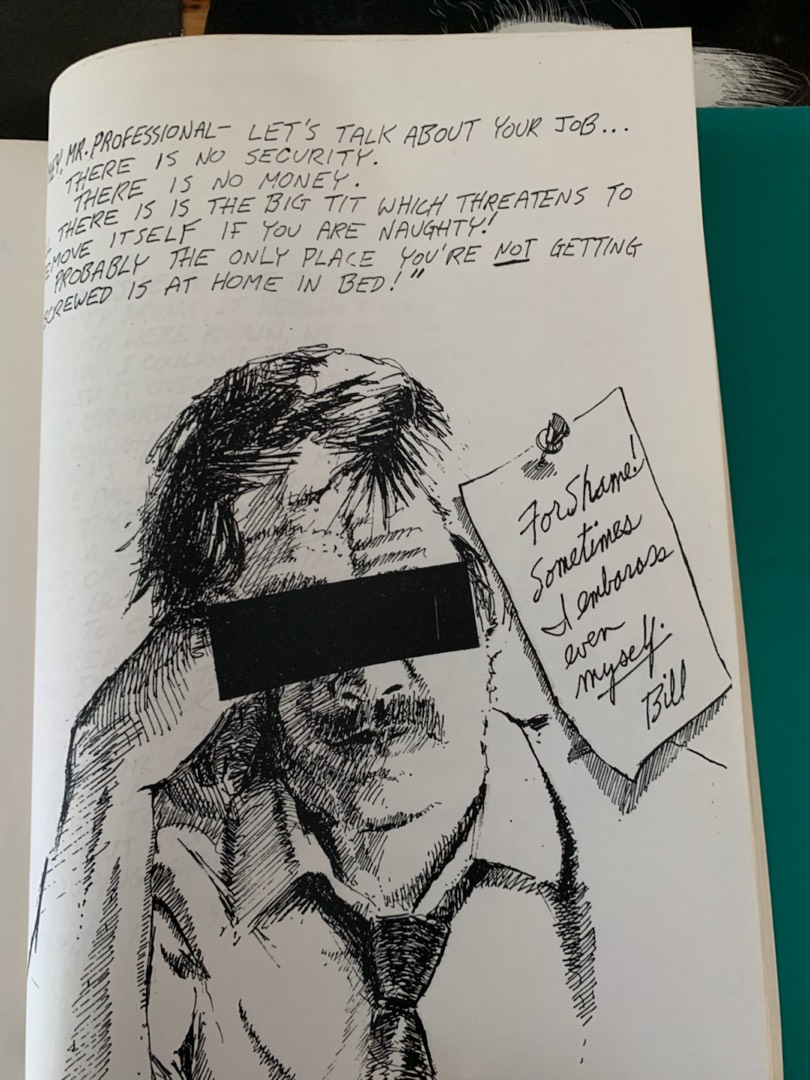 HEY, MR. PROFESSIONAL- LET'S TALK ABOUT YOUR JOB...
THERE IS NO SECURITY.
THERE IS NO MONEY.
THERE IS IS THE BIG TIT WHICH THREATENS TO
REMOVE ITSELF IF YOU ARE NAUGHTY!
PROBABLY THE ONLY PLACE YOU'RE NOT GETTING
SCREWED IS AT HOME IN BED!"
For Shame!
Sometimes
I embarass
even
myself.
Bill